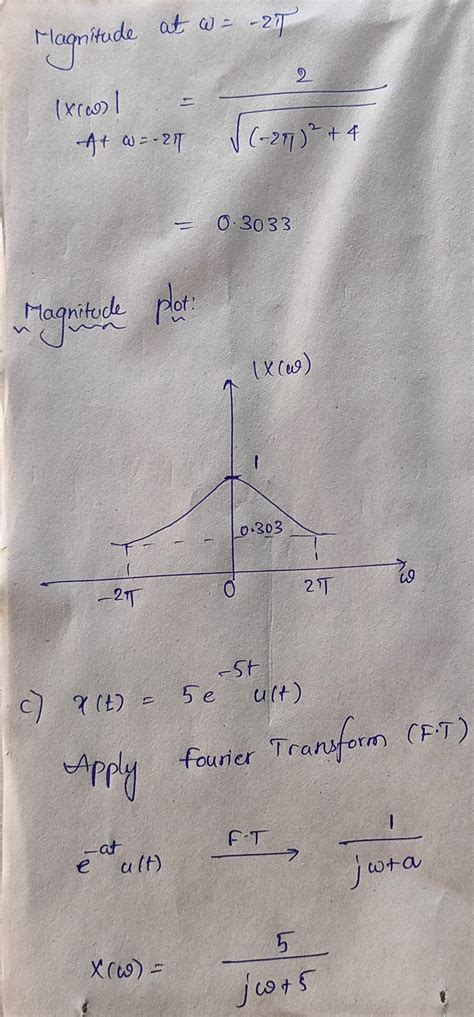 Magnitude at ω = -2π
|X(ω)| At ω=-2π = 2 / √((-2π)² + 4)
= 0.3033
Magnitude plot:
|X(ω)
1
0.303
-2π 0 2π ω
c) x(t) = 5e^-5t u(t)
Apply Fourier Transform (F.T)
e^-at u(t) F.T → 1 / jω+a
X(ω) = 5 / jω+5